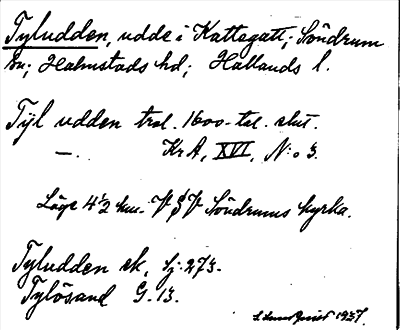 Tyludden, udde i Kattegatt; Söndrum
sn; Halmstads hd; Hallands l.
Tÿl udden trol. 1600-tal. slut.
—. KrA, XVI, N:o 3.
Läge 4 1/2 km. V § V Söndrums kyrka.
Tyludden ek. bj. 273.
Tylösand G. 13.
1937.